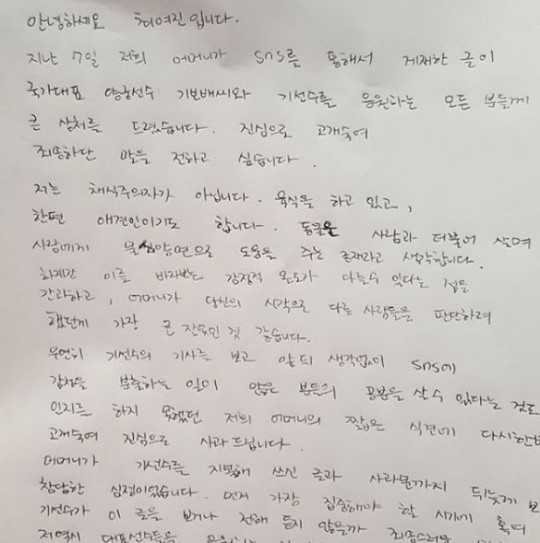 안녕하세요 최여진입니다.
지난 7일 저희 어머니가 SNS를 통해서 게재한 글이
국가대표 양궁선수 기보배씨와 기선수를 응원하는 모든 분들께
큰 상처를 드렸습니다. 진심으로 고개숙여
죄송하단 말을 전하고 싶습니다.
저는 채식주의자가 아닙니다. 육식을 하고 있고,
한편 애견인이기도 합니다. 동물은 사람과 더불어 살며
사람에게 물심양면으로 도움을 주는 존재라고 생각합니다.
하지만 이를 바라보는 감정적 온도가 다를수 있다는 점을
간과하고, 어머니가 당신의 시각으로 다른 사람들을 판단하려
했던게 가장 큰 잘못인 것 같습니다.
우연히 기선수의 기사를 보고 앞뒤 생각없이 SNS에
감정을 분출하는 일이 많은 분들의 공분을 살 수 있다는 걸로
인지를 하지 못했던 저희 어머니의 짧은 식견에 다시한번
고개숙여 진심으로 사과드립니다.
어머니가 기선수를 지목해 쓰신 글과 사과문까지 뒤늦게 보
참담한 심정이었습니다. 먼저 가장 집중해야 할 시기에 혹여
기선수가 이 글을 보거나 전해 듣지 않을까 죄송스러운
저역시 대표선수들을